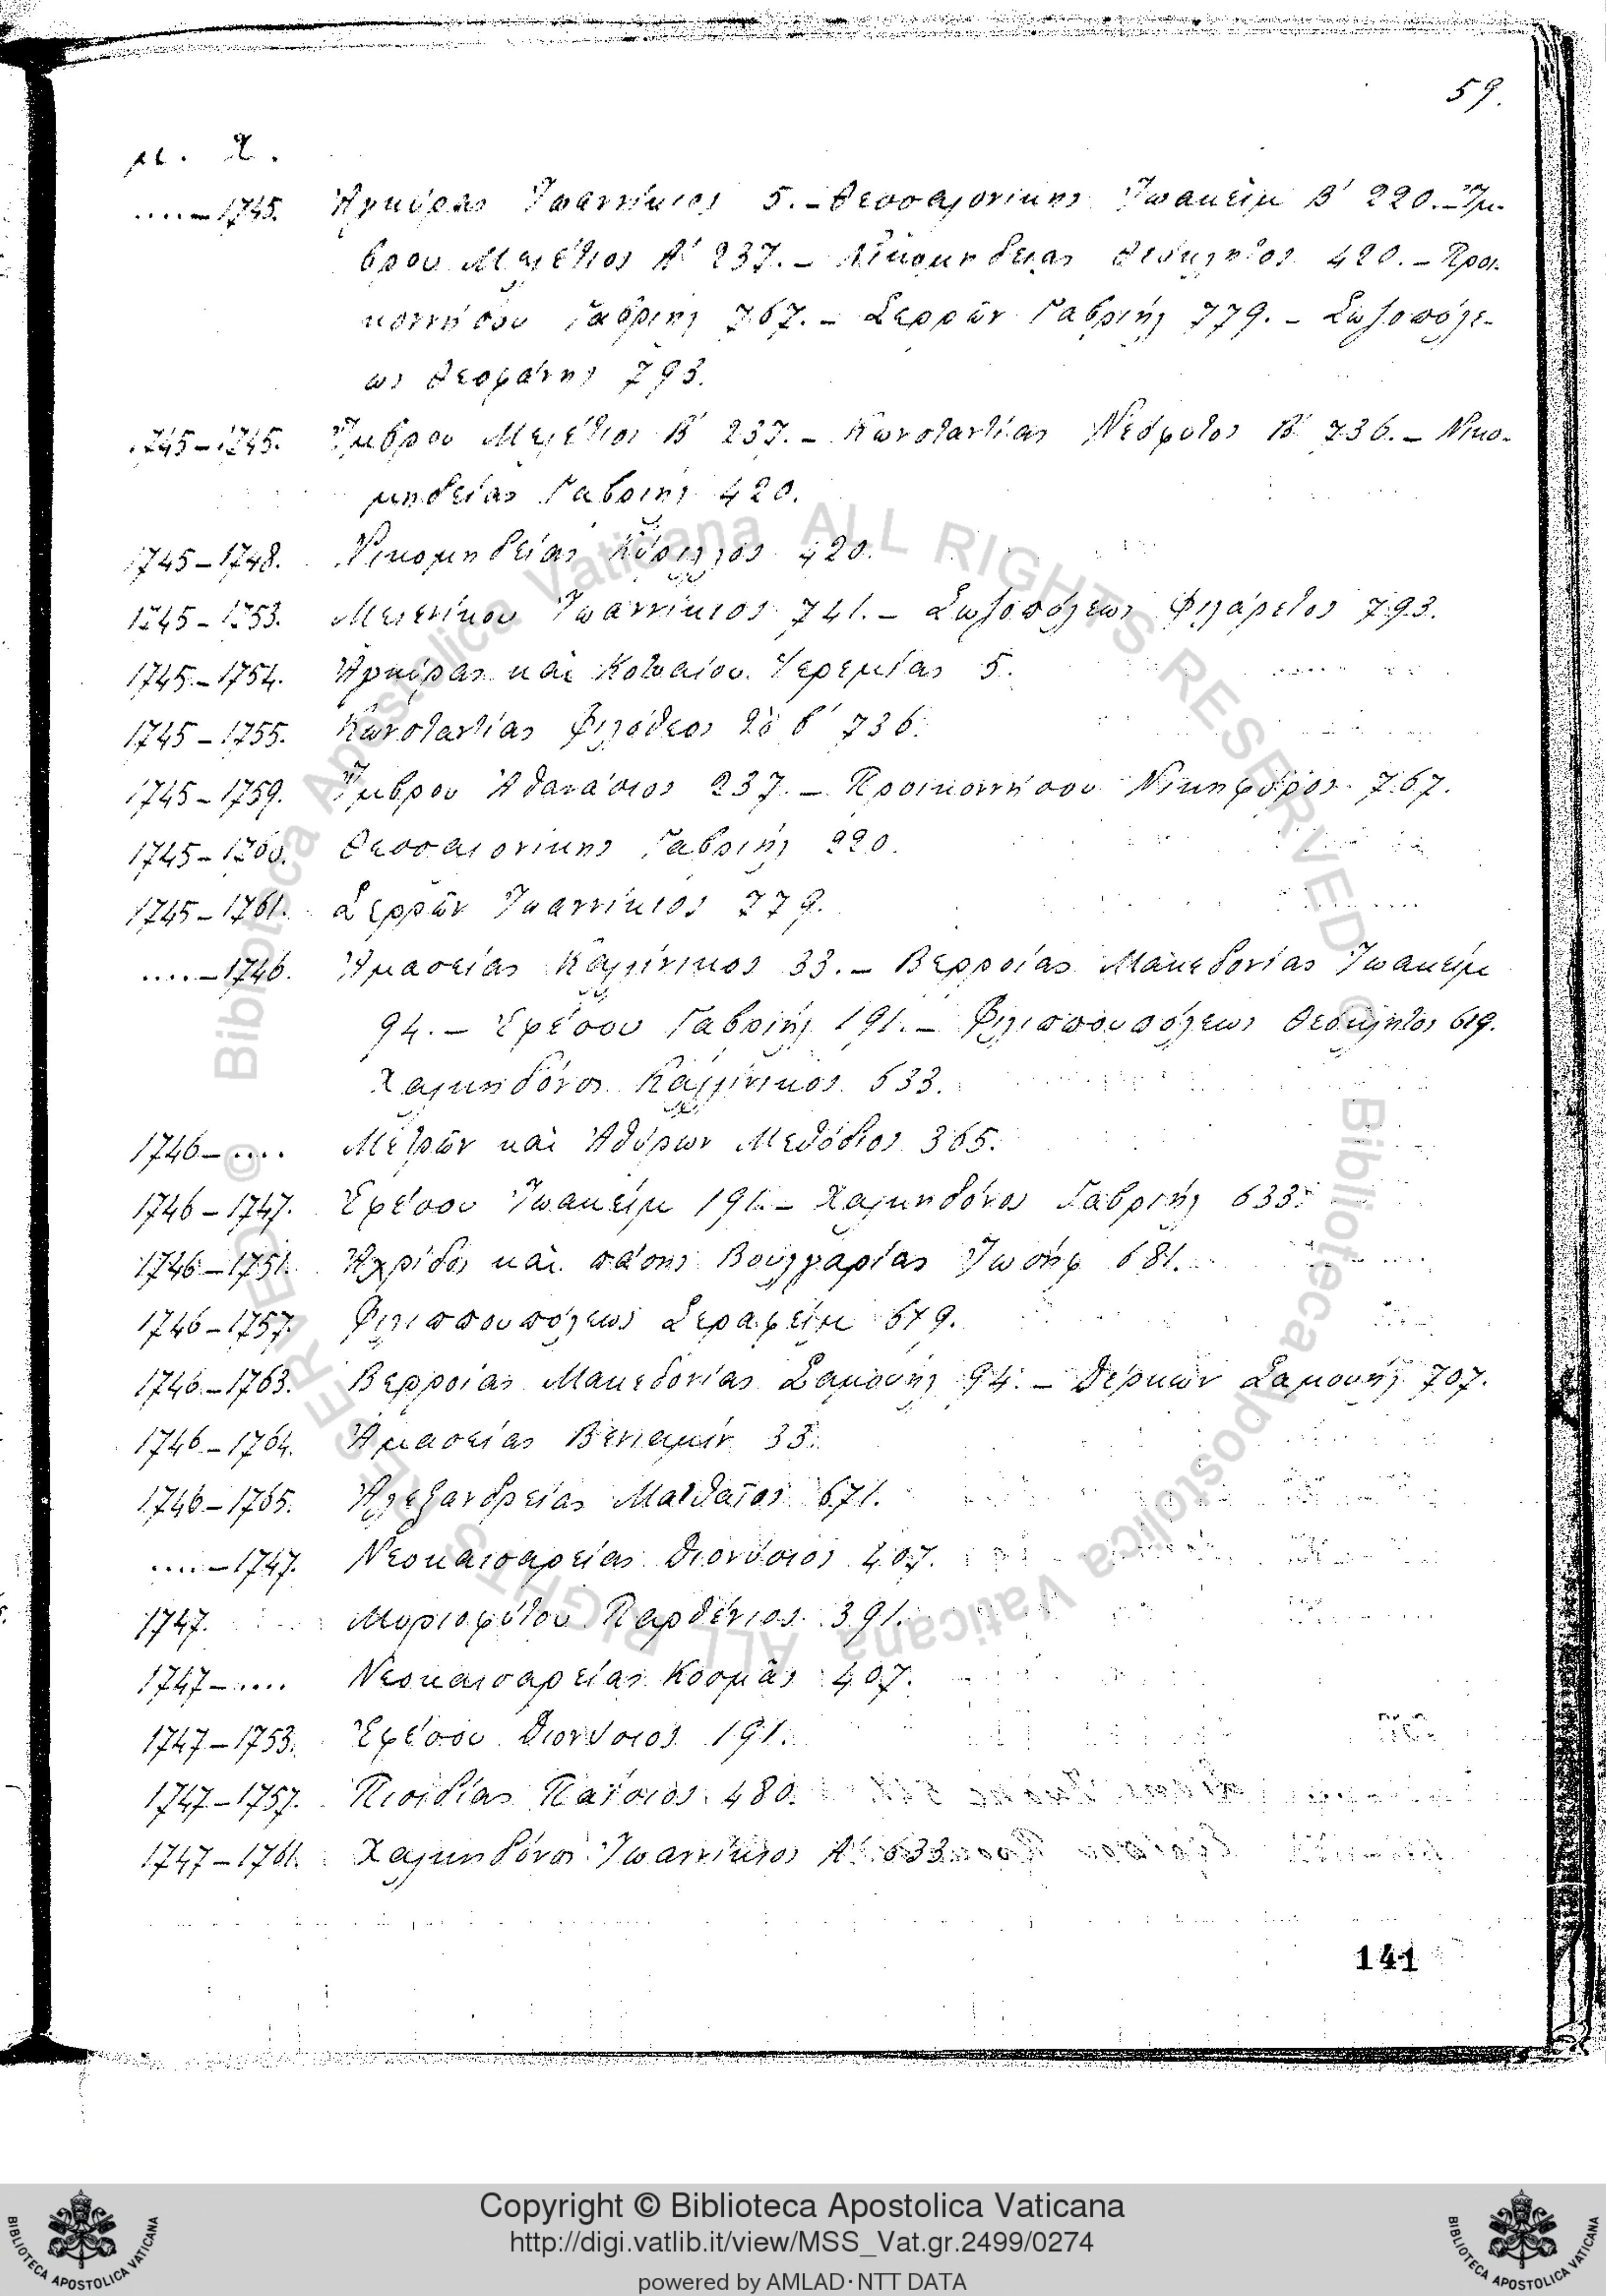 59.
μ. Χ.
....–1745. Ἀγκύρας Ἰωαννίκιος 5. – Θεσσαλονίκης Ἰωακεὶμ Β' 220. – Ἴμ-
βρου Μελέτιος Α' 237. – Νικομηδείας Θεόκλητος 420. – Προι-
κοννήσου Γαβριὴλ 767. – Σερρῶν Γαβριὴλ 779. – Σωζοπόλε-
ως Θεοφάνης 793.
1745–1745. Ἴμβρου Μελέτιος Β' 237. – Κωνσταντίας Νεόφυτος Β' 736. – Νικο-
μηδείας Γαβριὴλ 420.
1745–1748. Νικομηδείας Κύριλλος 420.
1745–1753. Μελενίκου Ἰωαννίκιος 741. – Σωζοπόλεως Φιλάρετος 793.
1745–1754. Ἀγκύρας καὶ Κοτυαίου Ἱερεμίας 5.
1745–1755. Κωνσταντίας Φιλόθεος τὸ β' 736.
1745–1759. Ἴμβρου Ἀθανάσιος 237. – Προικοννήσου Νικηφόρος 767.
1745–1760. Θεσσαλονίκης Γαβριὴλ 220.
1745–1761. Σερρῶν Ἰωαννίκιος 779.
....–1746. Ἀμασείας Καλλίνικος 33. – Βερροίας Μακεδονίας Ἰωακεὶμ
94. – Ἐφέσου Γαβριὴλ 191. – Φιλιππουπόλεως Θεόκλητος 619.
Χαλκηδόνος Καλλίνικος 633.
1746–.... Μετρῶν καὶ Ἀθύρων Μεθόδιος 365.
1746–1747. Ἐφέσου Ἰωακεὶμ 191. – Χαλκηδόνος Γαβριὴλ 633.
1746–1751. Ἀχρίδος καὶ πάσης Βουλγαρίας Ἰωσὴφ 681.
1746–1757. Φιλιππουπόλεως Σεραφεὶμ 619.
1746–1763. Βερροίας Μακεδονίας Σαμουὴλ 94. – Δέρκων Σαμουὴλ 707.
1746–1764. Ἀμασείας Βενιαμὶν 33.
1746–1765. Ἀλεξανδρείας Ματθαῖος 671.
....–1747. Νεοκαισαρείας Διονύσιος 407.
1747. Μυριοφύτου Παρθένιος 391.
1747–.... Νεοκαισαρείας Κοσμᾶς 407.
1747–1753. Ἐφέσου Διονύσιος 191.
1747–1757. Πισιδίας Παΐσιος 480.
1747–1761. Χαλκηδόνος Ἰωαννίκιος Α' 633.
141
Copyright © Biblioteca Apostolica Vaticana
http://digi.vatlib.it/view/MSS_Vat.gr.2499/0274
powered by AMLAD·NTT DATA
BIBLIOTECA APOSTOLICA VATICANA
BIBLIOTECA APOSTOLICA VATICANA
© Biblioteca Apostolica Vaticana ALL RIGHTS RESERVED
© Biblioteca Apostolica Vaticana ALL RIGHTS RESERVED